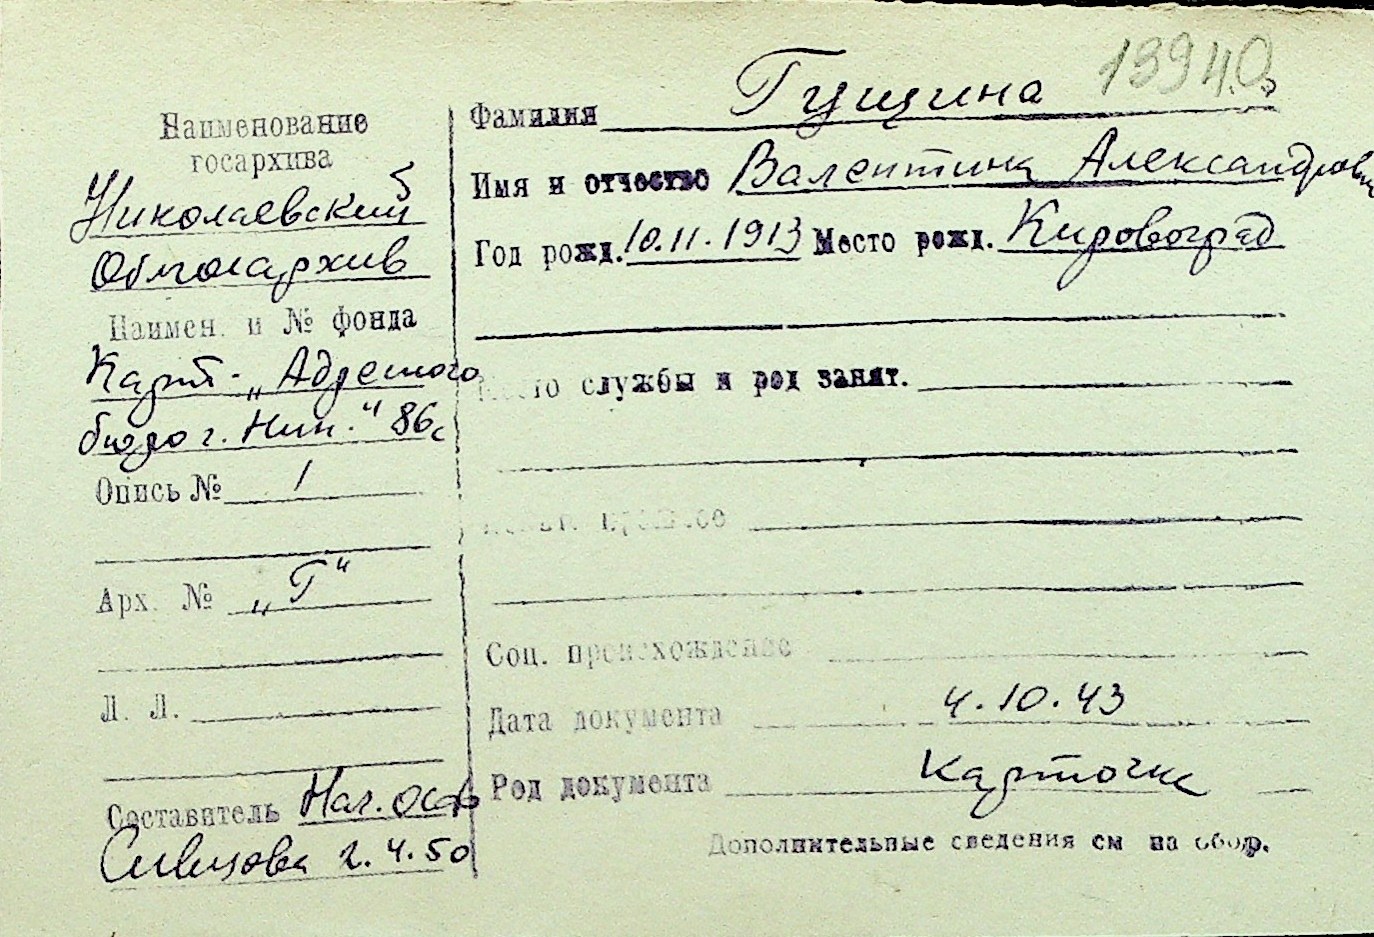 13940
Наименование
госархива
Николаевский
Облгосархив
Наимен. и № фонда
Карт. „Адресного
бюро г. Ник." 86с
Опись № 1
Арх. № „Г"
Л. Л.
Составитель Нач. оса
г. 4.50
Фамилия Гущина
Имя и отчество Валентина Александровн
Год рожд. 10.11.1913 Место рожд. Кировоград
Место службы и род занят.
Соц. происхождение
Дата документа 4.10.43
Род документа карточка
Дополнительные сведения см на обор.